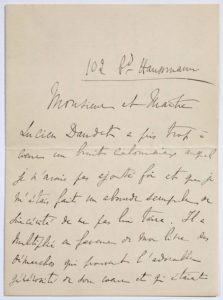 102 Bd Haussmann
Monsieur et Maître
Lucien Daudet a pris trop à
cœur un bruit calomnieux auquel
je n'avais pas ajouté foi et que je
m'étais fait un absurde scrupule de
sincérité de ne pas lui taire. Il a
multiplié en faveur de mon livre des
démarches qui prouvent l'adorable
générosité de son cœur et qui étaient